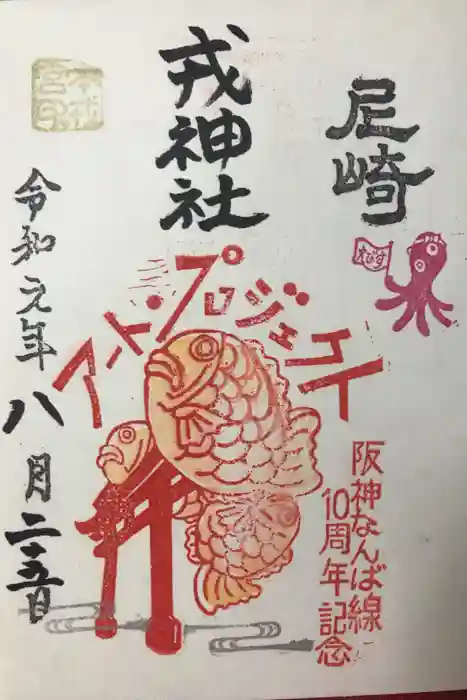 尼崎
えびす
戎神社
アート・プロジェクト
阪神なんば線
10周年記念
令和元年八月二十五日